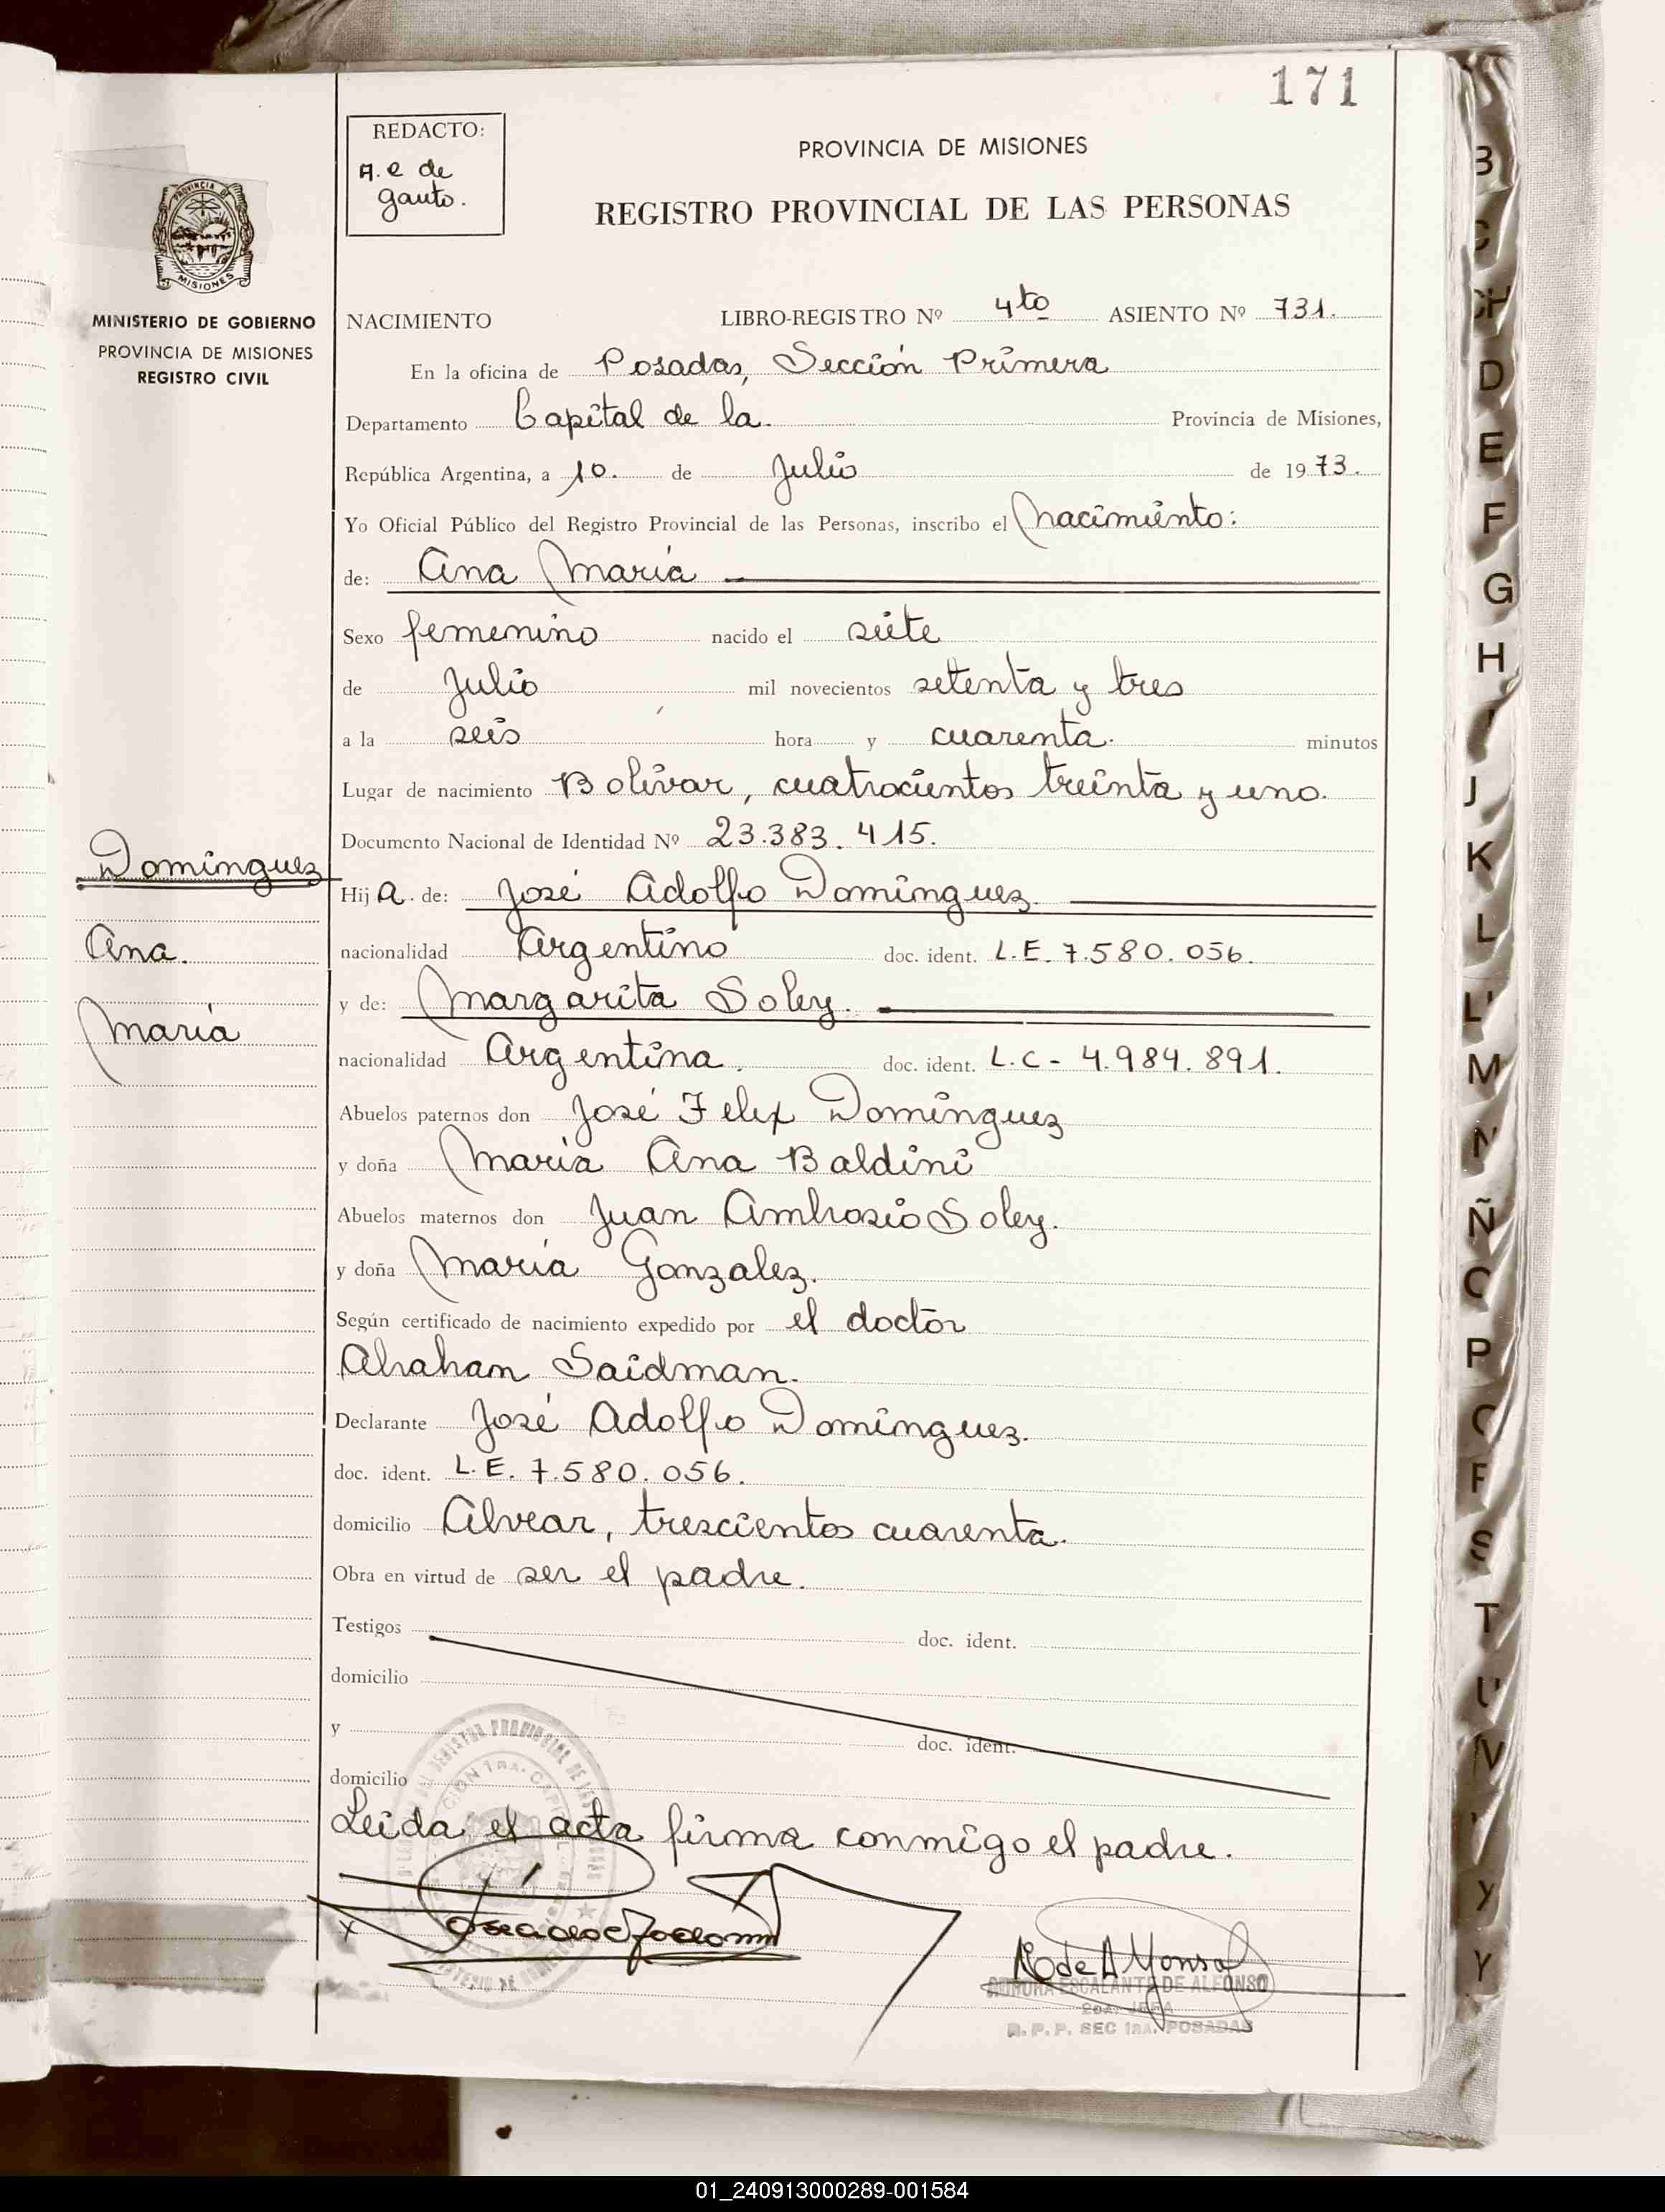 171
REDACTO:
A. e de
gauto.
PROVINCIA DE MISIONES
REGISTRO PROVINCIAL DE LAS PERSONAS
PROVINCIA DE
MISIONES
MINISTERIO DE GOBIERNO
PROVINCIA DE MISIONES
REGISTRO CIVIL
NACIMIENTO LIBRO-REGISTRO Nº 4to ASIENTO Nº 731.
En la oficina de Posadas, Sección Primera
Departamento Capital de la. Provincia de Misiones,
República Argentina, a 10. de Julio de 1973.
Yo Oficial Público del Registro Provincial de las Personas, inscribo el Nacimiento:
de: Ana María
Sexo femenino nacido el siete
de Julio mil novecientos setenta y tres
a la seis hora y cuarenta. minutos
Lugar de nacimiento Bolivar, cuatrocientos treinta y uno.
Documento Nacional de Identidad Nº 23.383.415.
Dominguez
Ana.
María
Hija. de: José Adolfo Dominguez.
nacionalidad Argentino doc. ident. L.E. 7.580.056.
y de: Margarita Soley.
nacionalidad Argentina. doc. ident. L.C - 4.984.891.
Abuelos paternos don José Felix Dominguez
y doña María Ana Baldini
Abuelos maternos don Juan Ambrosio Soley.
y doña María Gonzalez.
Según certificado de nacimiento expedido por el doctor
Abraham Saidman.
Declarante José Adolfo Dominguez.
doc. ident. L.E. 7.580.056.
domicilio Alvear, trescientos cuarenta.
Obra en virtud de ser el padre.
Testigos doc. ident.
domicilio
y doc. ident.
domicilio
Leida el acta firma conmigo el padre.
x
AURORA ESCALANTE DE ALFONSO
2da. JEFA
R.P.P. SEC 1RA. POSADAS
B
C
CH
D
E
F
G
H
I
J
K
L
LL
M
N
Ñ
O
P
Q
R
S
T
U
V
Y
Y
01_240913000289-001584